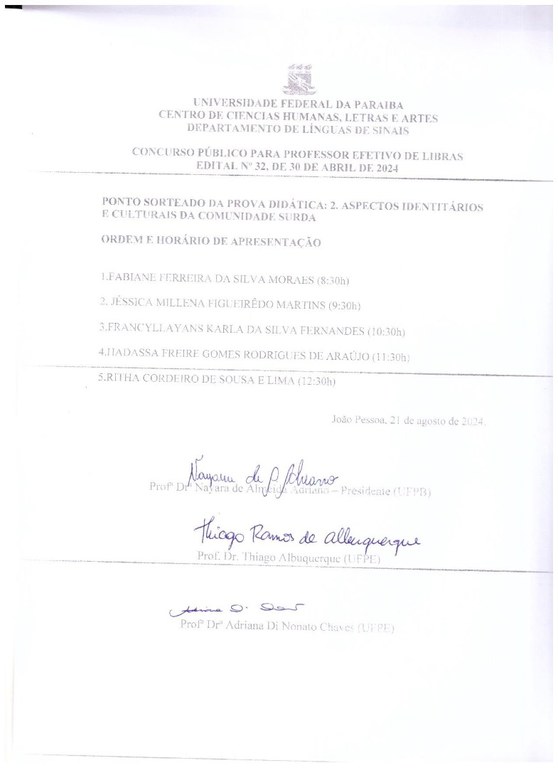 UNIVERSIDADE FEDERAL DA PARAIBA
CENTRO DE CIENCIAS HUMANAS, LETRAS E ARTES
DEPARTAMENTO DE LÍNGUAS DE SINAIS
CONCURSO PÚBLICO PARA PROFESSOR EFETIVO DE LIBRAS
EDITAL Nº 32, DE 30 DE ABRIL DE 2024
PONTO SORTEADO DA PROVA DIDÁTICA: 2. ASPECTOS IDENTITÁRIOS
E CULTURAIS DA COMUNIDADE SURDA
ORDEM E HORÁRIO DE APRESENTAÇÃO
1.FABIANE FERREIRA DA SILVA MORAES (8:30h)
2. JÉSSICA MILLENA FIGUEIRÊDO MARTINS (9:30h)
3.FRANCYLLAYANS KARLA DA SILVA FERNANDES (10:30h)
4.HADASSA FREIRE GOMES RODRIGUES DE ARAÚJO (11:30h)
5.RITHA CORDEIRO DE SOUSA E LIMA (12:30h)
João Pessoa, 21 de agosto de 2024.
Nayara de
Profª Drª Nayara de Almeida Adriano – Presidente (UFPB)
Thiago Ramos de Albuquerque
Prof. Dr. Thiago Albuquerque (UFPE)
Profª Drª Adriana Di Donato Chaves (UFPE)